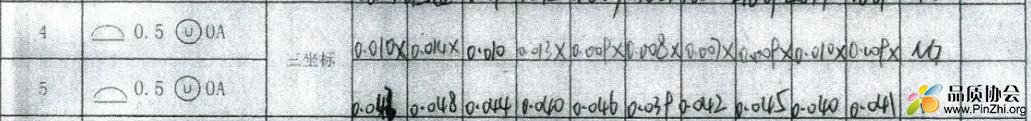 4 ⌓ 0.5 Ⓤ 0A 0.010X 0.014X 0.010 0.013X 0.009X 0.008X 0.007X 0.009X 0.010X 0.009X NG
三坐标
5 ⌓ 0.5 Ⓤ 0A 0.048 0.044 0.040 0.046 0.039 0.042 0.045 0.040 0.041
品质协会
www.PinZhi.org